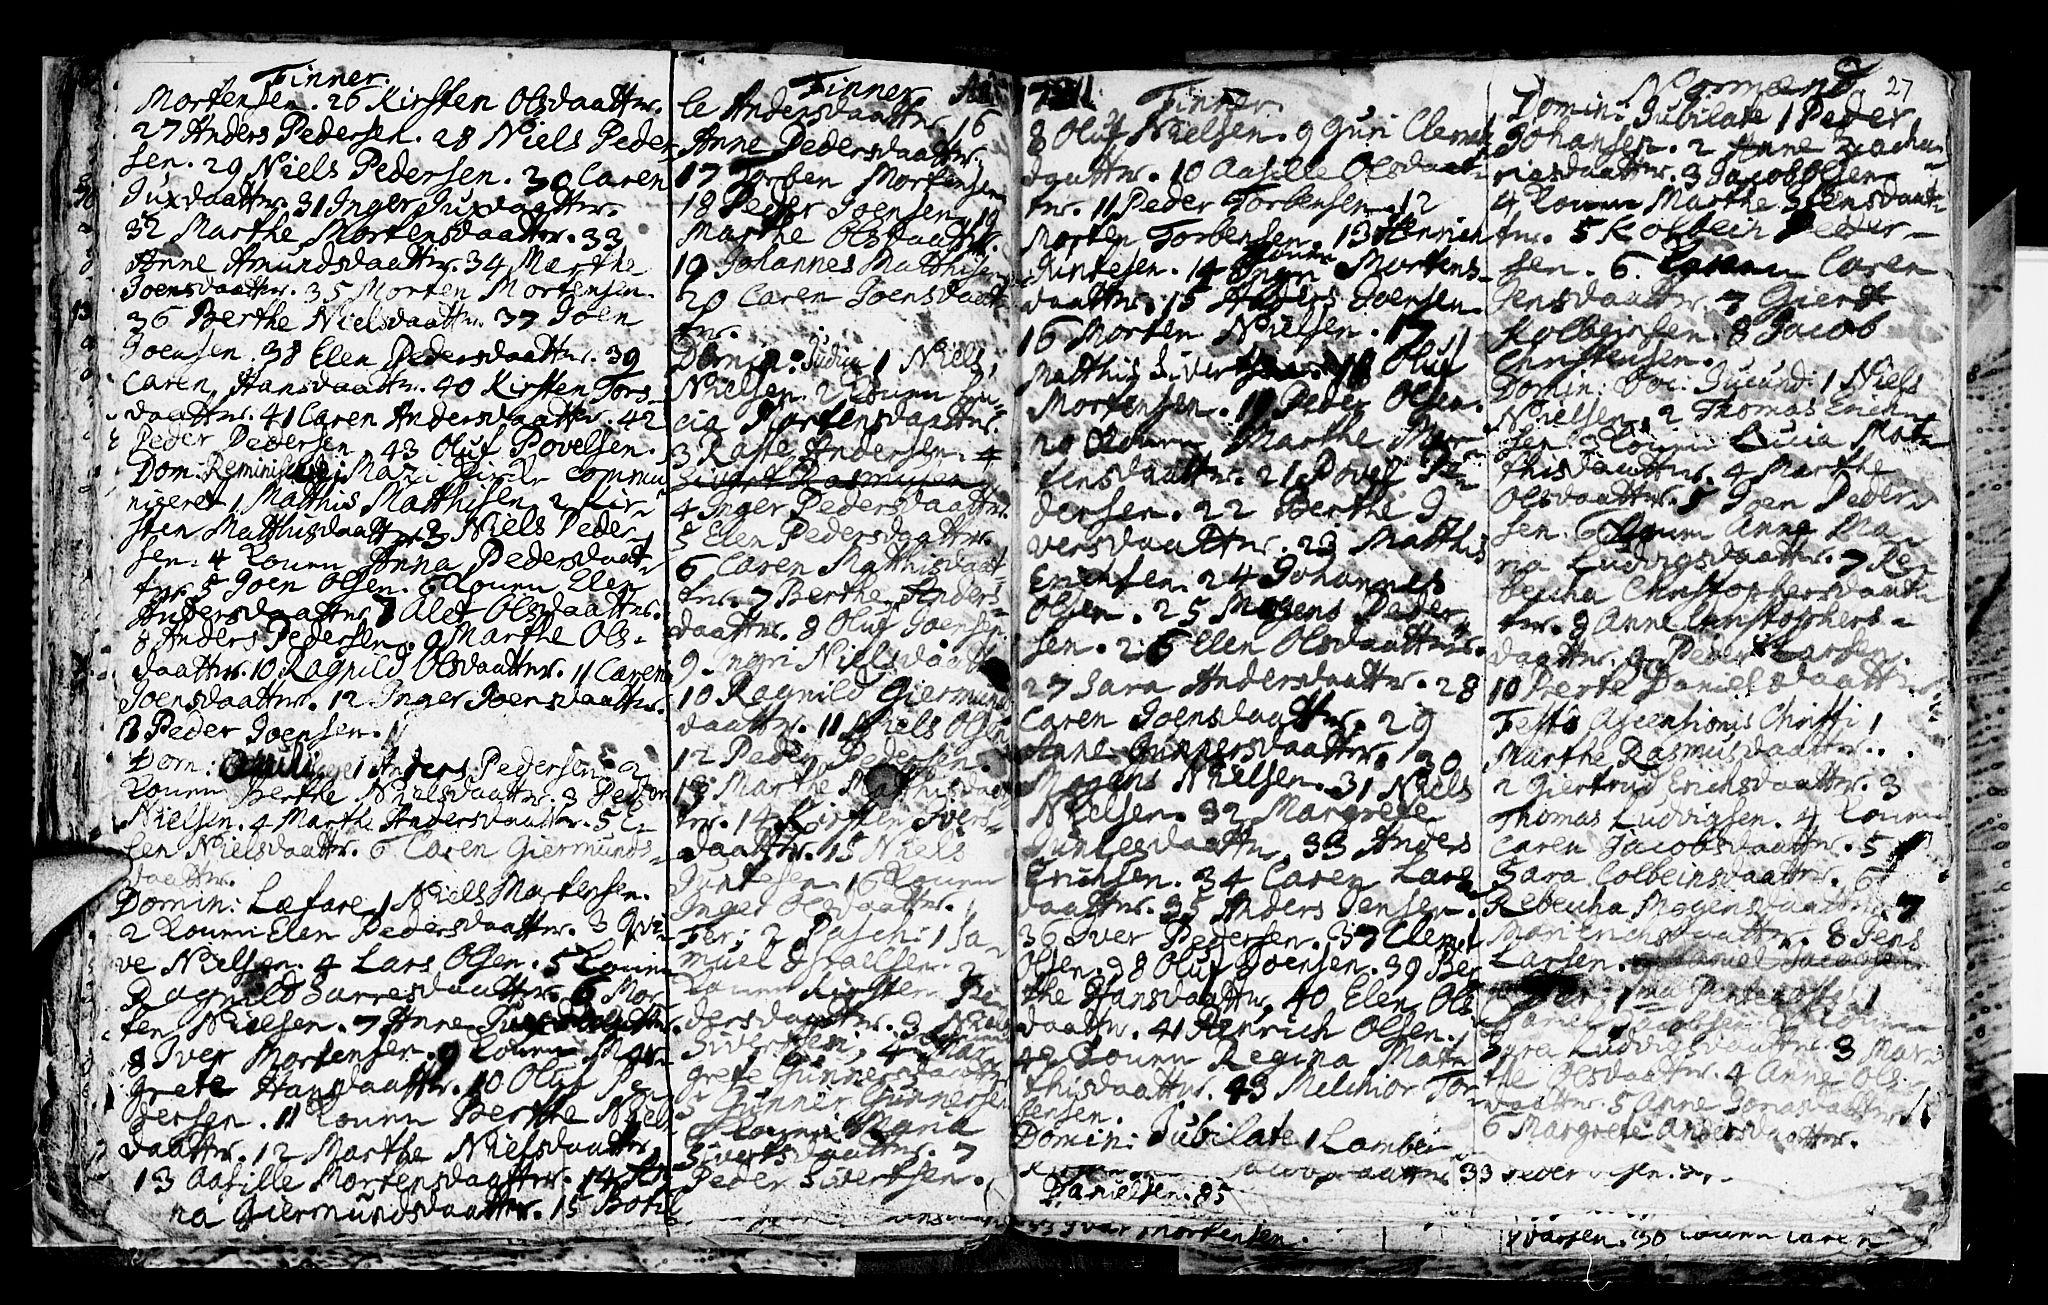 Finner.
Mortensen. 26 Kirsten Olsdaattr.
27 Anders Pedersen. 28 Niels Peder-
sen. 29 Niels Pedersen. 30 Caren
Juxdaattr. 31 Inger Juxdaattr.
32 Marthe Mortensdaattr. 33
Anne Amundsdaattr. 34 Marthe
Joensdaattr. 35 Morten Mortensen.
36 Berthe Nielsdaattr. 37 Joen
Joensen. 38 Elen Pedersdaattr. 39
Caren Hansdaattr. 40 Kirsten Tors-
daattr. 41 Caren Andersdaattr. 42
Peder Pedersen 43 Oluf Povelsen.
Dom: Reminiscere Mari Kirke commu-
niceret 1 Matthis Matthisen 2 Kir-
sten Matthisdaattr 3 Niels Peder-
sen. 4 Konen Anna Pedersdaat-
tr. 5 Joen Olsen. 6 Konen Elen
Andersdaattr 7 Alet Olsdaattr.
8 Anders Pedersen. 9 Marthe Ols-
daattr. 10 Ragnild Olsdaattr. 11 Caren
Joensdaattr. 12 Inger Joensdaattr.
13 Peder Joensen.
Dom: 1 Anders Pedersen. 2
Konen Berthe Nielsdaattr. 3 Peder
Nielsen. 4 Marthe Andersdaattr. 5 E-
len Nielsdaattr. 6 Caren Giermunds-
daattr.
Domin: Læfare 1 Niels Mortensen.
2 Konen Elen Pedersdaattr. 3 Qvi-
ve Nielsen. 4 Lars Olsen. 5 Konen
Ragnild Larresdaattr. 6 Mor-
ten Nielsen. 7 Anne
8 Iver Mortensen. 9 Konen Mar-
grete Hansdaattr. 10 Oluf Pe-
dersen. 11 Konen Berthe Niels-
daattr. 12 Marthe Nielsdaattr
13 Aasille Mortensdaattr. 14 An-
na Giermundsdaattr. 15 Botil-
Finner An
le Andersdaattr. 16
Anne Pedersdaattr.
17 Torben Mortensen
18 Peder Joensen. 19
Marthe Olsdaattr.
19 Johannes Matthisen
20 Caren Joensdaat-
tr.
Domin: Judica 1 Niels
Nielsen. 2 Konen Lu-
cia Mortensdaattr.
3 Rasse Andersen. 4
Sivert Rasmusen
4 Inger Pedersdaattr.
5 Elen Pedersdaattr.
6 Caren Matthisdaat-
tr. 7 Berthe Anders-
daattr. 8 Oluf Joensen
9 Ingri Nielsdaattr
10 Ragnild Giermunds
daattr. 11 Niels Olsen
12 Peder Pedersen.
13 Marthe Matthisdaat-
tr. 14 Kirsten Ivers-
daattr. 15 Niels
Juntesen. 16 Konen
Inger Olsdaattr.
Fer: 2 Pasch: 1 Sa-
muel Israelsen. 2
Konen Kirsten Pe-
dersdaattr. 3 Niels
Sivertsen, 4 Mar-
grete Gunnersdaattr
5 Gunner Gunnersen
6 Konen Maria
Sivertsdaattr. 7
Peder Sivertsen.
Finner.
8 Oluf Nielsen. 9 Guri Clemet
daattr. 10 Aasille Olsdaat-
tr. 11 Peder Torbensen. 12
Morten Torbensen. 13 Henrich
Juntesen. 14 Konen Ingri Mortens-
daattr. 15 Anders Joensen.
16 Morten Nielsen. 17
Matthis Sivertsen. 18 Oluf
Mortensen. 19 Peder Olsen.
20 Konen Marthe Mor-
tensdaattr. 21 Povel Pe-
dersen. 22 Berthe I-
versdaattr. 23 Matthis
Erichsen. 24 Johannes
Olsen. 25 Mogens Peder-
sen. 26 Elen Olsdaattr.
27 Sara Andersdaattr. 28
Caren Joensdaattr. 29
Anne Gunnersdaattr. 30
Mogens Nielsen. 31 Niels
Nielsen. 32 Margrete
Juntesdaattr. 33 Anders
Erichsen. 34 Caren Lars
daattr. 35 Anders Jensen.
36 Iver Pedersen. 37 Clemet
Olsen. 38 Oluf Joensen. 39 Ber-
the Hansdaattr. 40 Elen Ols-
daattr. 41 Henrich Olsen.
42 Konen Regina Mat-
thisdaattr. 43 Melchior Tor-
bensen.
Domin: Jubilate 1 Lamber
33 Peder Olsen. 34
Danielsen. 35
Ivar Mortensen.
Normænd. 27
Domin: Jubilate 1 Peder
Johansen. 2 Anne Zacha-
riesdaattr. 3 Jacob Olsen
4 Konen Marthe Stensdaat-
tr. 5 Kolbein Peder-
sen. 6. Konen Caren
Jensdaattr. 7 Giert
Kolbeinsen. 8 Jacob
Christensen.
Domin: Voc: Jucund: 1 Niels
Nielsen. 2 Thomas Erich-
sen 3 Konen Lucia Mat-
thisdaattr. 4 Marthe
Olsdaattr. 5 Joen Peder-
sen. 6 Konen Anne Ma-
ria Ludvigsdaattr. 7 Re-
beccha Christophersdaat-
tr. 8 Anne Christophers-
daattr. 9 Peder Larsen.
10 Berte Danielsdaattr.
Festo Ascensionis Christi 1
Marthe Rasmusdaattr.
2 Giertrud Erichsdaattr. 3
Thomas Ludvigsen. 4 Konen
Caren Jacobsdaattr. 5
Sara Colbeinsdaattr. 6
Rebeccha Mogensdaattr. 7
Mari Erichsdaattr. 8 Jens
Larsen. 9 Daniel Jacobsen
Fer: 1ma Pentecost: 1
Daniel Jacobsen 2 Konen
Sara Ludvigsdaattr. 3 Mar-
the Olsdaattr. 4 Anne Ols-
daattr. 5 Anne Jonasdaattr
6 Margrete Andersdaattr.
Ivarsen. 30 Konen Caren